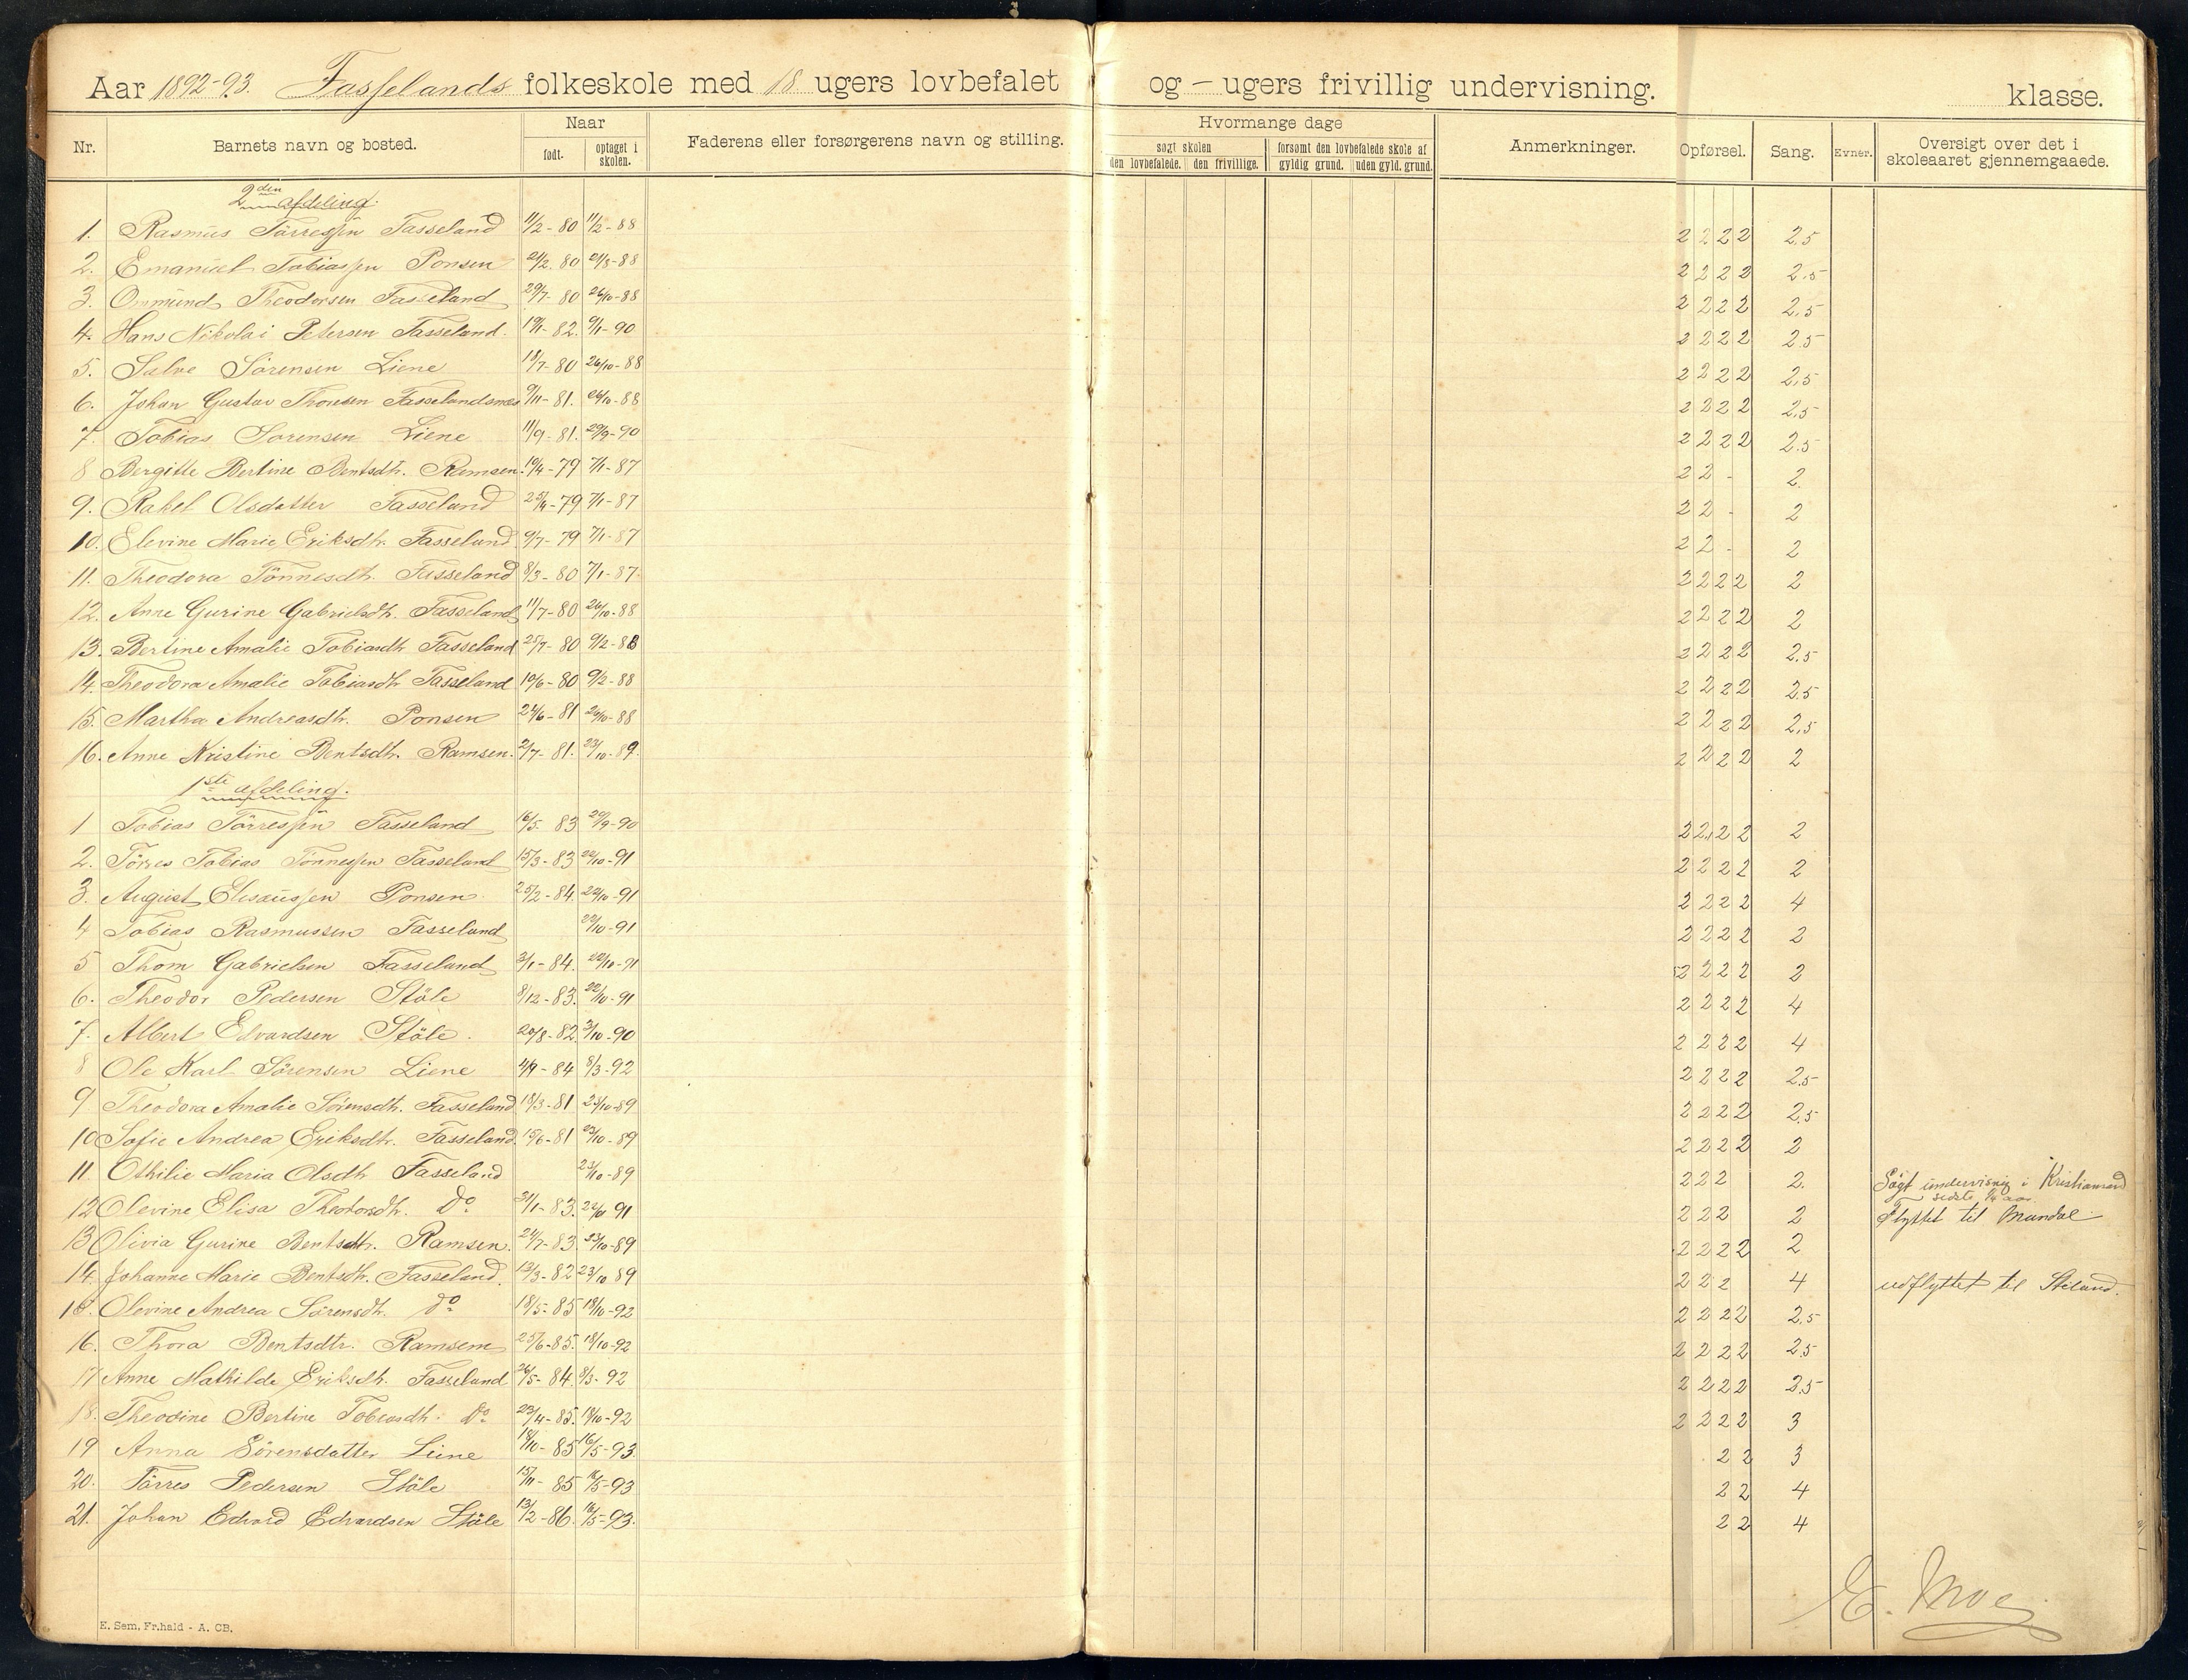 Aar 1892-93. Fasselands folkeskole med 18 ugers lovbefalet og - ugers frivillig undervisning. klasse.
Nr. Barnets navn og bosted. Naar født. optaget i skolen. Faderens eller forsørgerens navn og stilling. Hvormange dage søgt skolen den lovbefalede. den frivillige. forsømt den lovbefalede skole af gyldig grund. uden gyld. grund. Anmerkninger. Opførsel. Sang. Evner. Oversigt over det i skoleaaret gjennemgaaede.
2den afdeling.
1. Rasmus Tørressen Fasseland 11/2-80 11/2-88 2 2 2 2 2,5
2. Emanuel Tobiassen Ponsen 2 2 2 2 2,5
3. Ommund Theodorsen Fasseland 29/7-80 26/10-88 2 2 2 2 2,5
4. Hans Nikolai Petersen Fasseland. 19/1-82. 9/1-90 2 2 2 2 2.5
5. Salve Sörensen Liene 18/7-80 26/10-88 2 2 2 2 2,5
6. Johan Gustav Thomsen Fasselandsnes 9/11-81. 26/10-88 2 2 2 2 2,5
7. Tobias Sorensen Liene 11/9-81. 29/9-90 2 2 2 2 2.5
8 Bergitte Bertine Bentsdtr. Ramsen. 10/4-79 7/1-87 2 2 - 2.
9. Rakel Olsdatter Fasseland 25/4-79 7/1-87 2 2 - 2
10. Elevine Marie Eriksdtr. Fasseland 9/7-79 7/1-87 2 2 - 2
11. Theodora Tönnesdtr. Fasseland 8/3-80 7/1-87 2 2 2 2 2
12. Anne Gurine Gabrielsdtr. Fasseland 11/7-80 26/10-88 2 2 2 2 2
13. Bertine Amalie Tobiasdtr. Fasseland 25/7-80 9/2-88 2 2 2 2 2,5
14. Theodora Amalie Tobiasdtr Fasseland 10/6-80 9/2-88 2 2 2 2 2,5
15. Martha Andreasdtr. Ponsen 24/6-81 26/10-88 2 2 2 2 2,5
16. Anne Kristine Bentsdtr. Ramsen. 2/7-81. 23/10-89. 2 2 2 2 2
1ste afdeling.
1 Tobias Tørressen Fasseland 16/5 83 29/9-90 2 2 2 2 2
2. Törres Tobias Tönnessen Fasseland 15/3-83 22/10-91 2 2 2 2 2
3. August Elisæussen Ponsen 25/2-84. 22/10-91 2 2 2 2 4
4 Tobias Rasmussen Fasseland 22/10-91 2 2 2 2 2
5 Thom Gabrielsen Fasseland 3/1-84. 22/10-91 2 2 2 2 2
6. Theodor Pedersen Stöle 8/12-83. 22/10-91 2 2 2 2 4
7. Albert Edvardsen Støle. 20/8-82. 3/10-90 2 2 2 2 4
8 Ole Karl Sörensen Liene 4/9-84 8/3-92 2 2 2 2 2.5
9 Theodora Amalie Sörensdtr. Fasseland 18/3-81 23/10-89 2 2 2 2 2,5
10 Sofie Andrea Eriksdtr. Fasseland 15/6-81 23/10-89 2 2 2 2 2
11. Othilie Maria Olsdtr Fasseland 23/10-89 2 2 2 2. Søgt undervisnig i Kristiansand sidste 1/4 aar.
12 Olevine Elisa Theodorsdtr. Do 31/1-83. 22/10 91 2 2 2 2 flyttet til Mandal
13 Olivia Gurine Bentsdtr. Ramsen. 24/7-83. 23/10-89 2 2 2 2 2
14. Johanne Marie Bentsdtr. Fasseland. 13/3-82 23/10 89 2 2 2 4 udflyttet til Steland.
15. Olevine Andrea Sørensdtr. do 18/5-85 18/10-92 2 2 2 2 2,5
16. Thora Bentsdtr. Ramsen 25/6-85. 18/10-92 2 2 2 2 2.5
17 Anne Mathilde Eriksdtr. Fasseland 26/5-84. 8/3-92 2 2 2 2 2.5
18. Theodine Bertine Tobiasdtr. Do 23/4-85. 18/10-92 2 2 2 2 3
19 Anna Sörensdatter Liene 18/10-85 16/5-93. 2 2 3
20. Törres Pedersen Støle 15/11-85 16/5-93 2 2 4
21. Johan Edvard Edvardsen Støle 13/2-86. 16/5-93. 2 2 4
E. Moe
E. Sem, Fr.hald - A. CB.